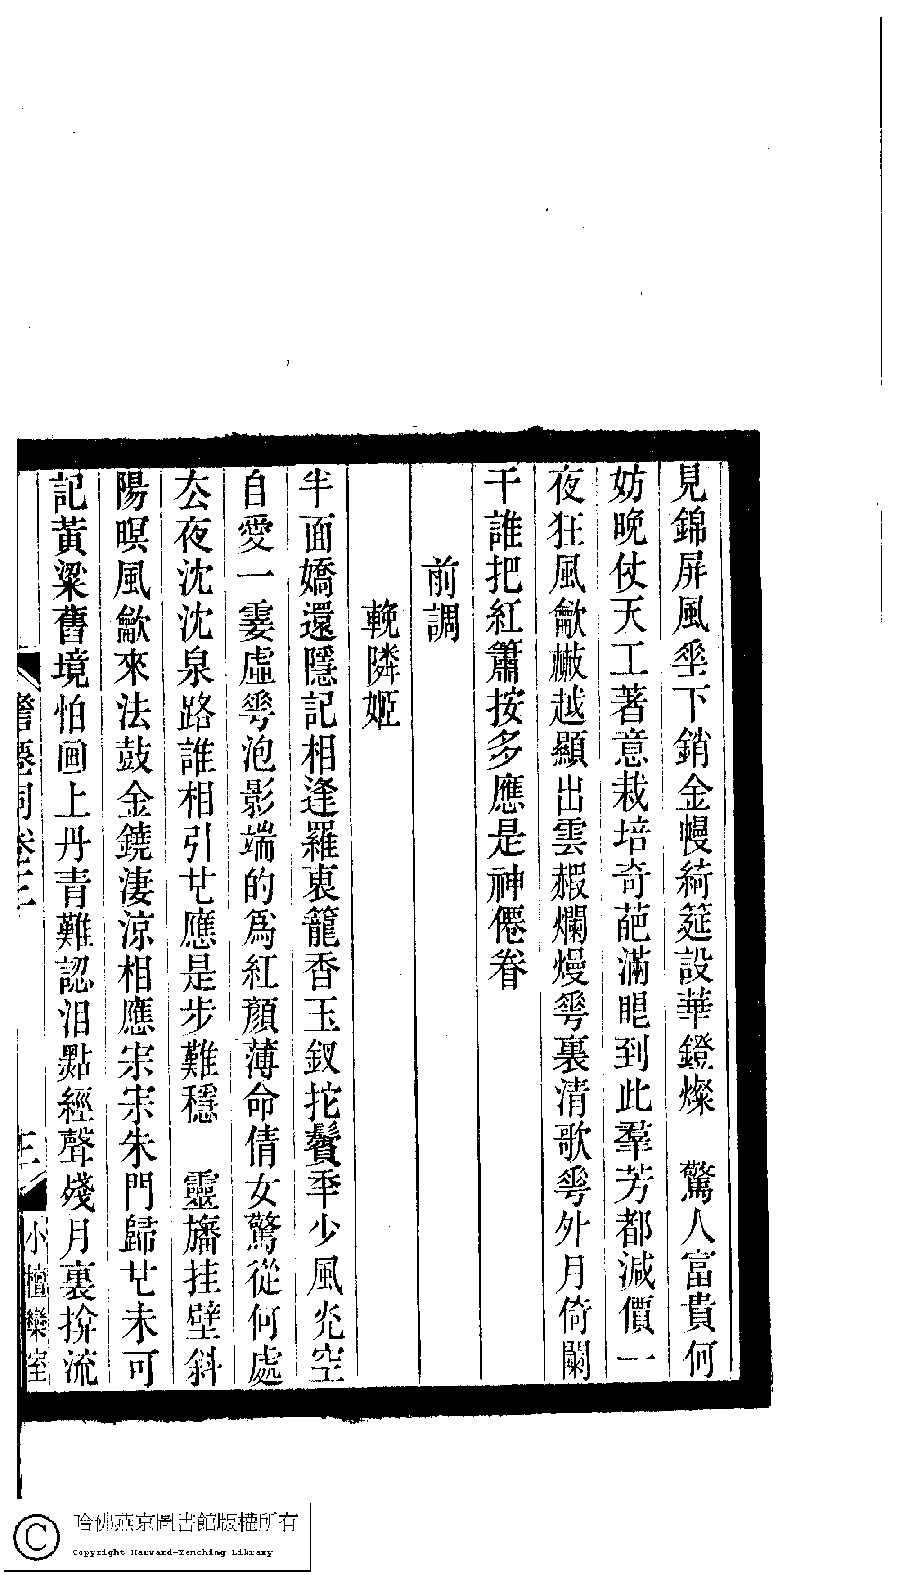 見錦屏風坐下銷金幔綺筵設華鐙燦　驚人富貴何
妨晚仗天工著意栽培奇葩滿眼到此羣芳都減價一
夜狂風歙越顯出雲赮爛熳雩裏清歌雩外月倚闌
干誰把紅簫按多應是神僊眷
前調
輓隣姬
半面嬌還隱記相逢羅衷籠香玉釵拕鬢秊少風光空
自愛一霎虛雩泡影端的爲紅顏薄命倩女驚從何處
厺夜沈沈泉路誰相引廿應是步難穩　靈旛挂壁斜
陽暝風歙來法鼓金鐃淒涼相應宗宗朱門歸廿未可
記黃粱舊境怕画上丹青難認泪點經聲殘月裏拚流
詞卷三
三
小檀欒室
哈佛燕京圖書館版權所有
Copyright Harvard-Yenching Library